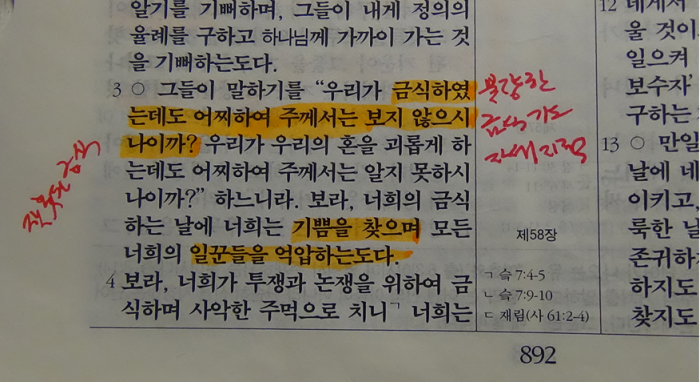 알기를 기뻐하며, 그들이 내게 정의의
율례를 구하고 하나님께 가까이 가는 것
을 기뻐하는도다.
3 ○ 그들이 말하기를 “우리가 금식하였
는데도 어찌하여 주께서는 보지 않으시
나이까? 우리가 우리의 혼을 괴롭게 하
는데도 어찌하여 주께서는 알지 못하시
나이까?” 하느니라. 보라, 너희의 금식
하는 날에 너희는 기쁨을 찾으며 모든
너희의 일꾼들을 억압하는도다.
4 보라, 너희가 투쟁과 논쟁을 위하여 금
식하며 사악한 주먹으로 치니ㄱ 너희는
불량한
금식
제58장
ㄱ 슥 7:4-5
ㄴ 슥 7:9-10
ㄷ 재림(사 61:2-4)
12 네게서
울 것이
일으켜
보수자
구하는
13 ○ 만일
날에 네
이키고,
룩한 날
존귀하
하지도
찾지도
892